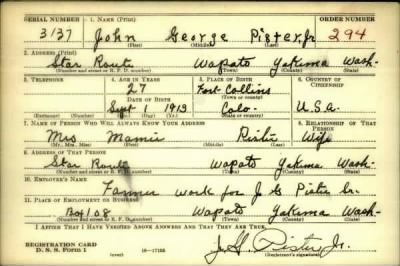 SERIAL NUMBER 1. NAME (Print) ORDER NUMBER
3137 John George Pister, Jr 294
(First) (Middle) (Last)
2. ADDRESS (Print)
Star Route Wapato Yakima Wash-
(Number and street or R. F. D. number) (Town) (County) (State)
3. TELEPHONE 4. AGE IN YEARS 5. PLACE OF BIRTH 6. COUNTRY OF CITIZENSHIP
27 Fort Collins
DATE OF BIRTH (Town or county)
Sept 1 1913 Colo- U.S.A.
(Mo.) (Day) (Yr.) (State or country)
7. NAME OF PERSON WHO WILL ALWAYS KNOW YOUR ADDRESS 8. RELATIONSHIP OF THAT PERSON
Mrs Mamie Pister Wife
(Mr., Mrs., Miss) (First) (Middle) (Last)
9. ADDRESS OF THAT PERSON
Star Route Wapato Yakima Wash-
(Number and street or R. F. D. number) (Town) (County) (State)
10. EMPLOYER'S NAME
Farmer work for J G Pister Sr.
11. PLACE OF EMPLOYMENT OR BUSINESS
Box 108 Wapato Yakima Wash-
(Number and street or R. F. D. number) (Town) (County) (State)
I AFFIRM THAT I HAVE VERIFIED ABOVE ANSWERS AND THAT THEY ARE TRUE.
REGISTRATION CARD
D. S. S. Form 1 (over) J. G. Pister, Jr.
(Registrant's signature)